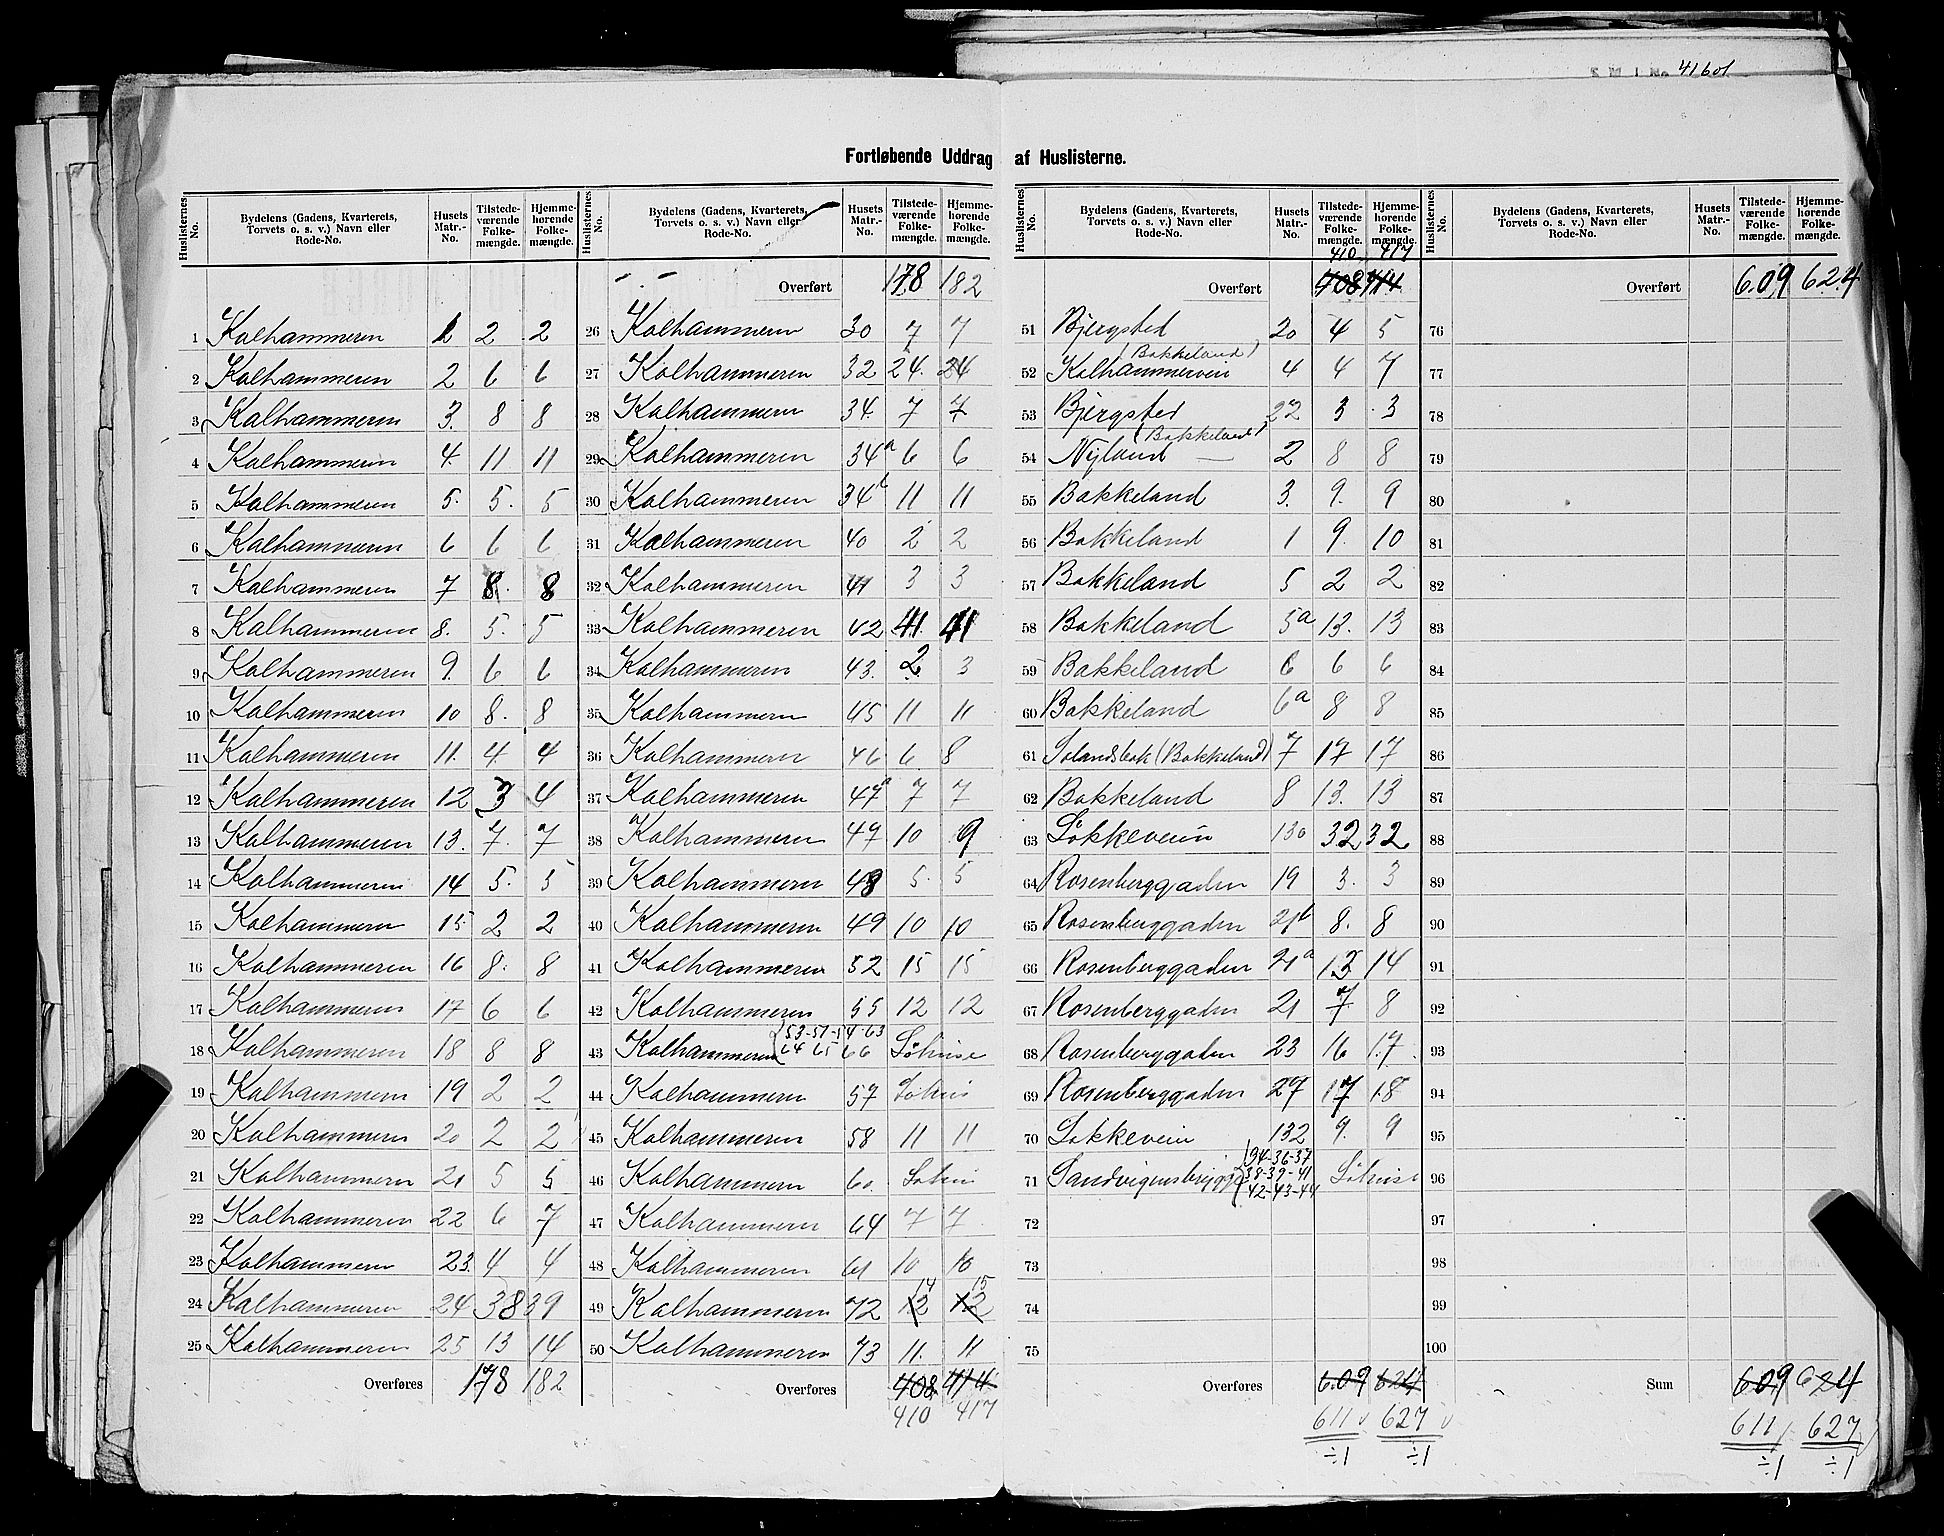 41601
Fortløbende Uddrag af Huslisterne.
Huslisternes No. Bydelens (Gadens, Kvarterets, Torvets o. s. v.) Navn eller Rode-No. Husets Matr.-No. Tilstedeværende Folkemængde. Hjemmehørende Folkemængde.
1 Kalhammeren 1 2 2
2 Kalhammeren 2 6 6
3 Kalhammeren 3. 8 8
4 Kalhammeren 4. 11 11
5 Kalhammeren 5. 5. 5
6 Kalhammeren 6 6 6
7 Kalhammeren 7 8. 8
8 Kalhammeren 8. 5. 5
9 Kalhammeren 9. 6 6
10 Kalhammeren 10 8. 8
11 Kalhammeren 11. 4. 4
12 Kalhammeren 12 3 4
13 Kalhammeren 13. 7. 7
14 Kalhammeren 14 5. 5
15 Kalhammeren 15 2 2
16 Kalhammeren 16 8. 8
17 Kalhammeren 17 6 6
18 Kalhammeren 18 8 8
19 Kalhammeren 19 2 2
20 Kalhammeren 20 2 2
21 Kalhammeren 21 5 5
22 Kalhammeren 22 6 7
23 Kalhammeren 23. 4 4
24 Kalhammeren 24 38 39
25 Kalhammeren 25 13 14
Overføres 178 182
Huslisternes No. Bydelens (Gadens, Kvarterets, Torvets o. s. v.) Navn eller Rode-No. Husets Matr.-No. Tilstedeværende Folkemængde. Hjemmehørende Folkemængde.
Overført 178 182
26 Kalhammeren 30 7 7
27 Kalhammeren 32 24. 24
28 Kalhammeren 34. 7 7
29 Kalhammeren 34a 6 6
30 Kalhammeren 34b 11 11
31 Kalhammeren 40 2 2
32 Kalhammeren 41 3 3
33 Kalhammeren 42 41. 41
34 Kalhammeren 43. 2 3
35 Kalhammeren 45 11 11
36 Kalhammeren 46 6 8
37 Kalhammeren 47a 7 7
38 Kalhammeren 47 10 9
39 Kalhammeren 48 5. 5
40 Kalhammeren 49 10 10
41 Kalhammeren 52 15 15
42 Kalhammeren 55 12 12
43 Kalhammeren 53-51-54-63
64 65 66 Söhuse
44 Kalhammeren 57 Söhus
45 Kalhammeren 58 11 11
46 Kalhammeren 60.
47 Kalhammeren 64 7 7
48 Kalhammeren 61 10 10
14 15
49 Kalhammeren 72 12 12
50 Kalhammeren 73 11. 11
Overføres 408 414
410 417
Huslisternes No. Bydelens (Gadens, Kvarterets, Torvets o. s. v.) Navn eller Rode-No. Husets Matr.-No. Tilstedeværende Folkemængde. Hjemmehørende Folkemængde.
410 417
Overført 408 414
51 Bjergsted 20 4 5
(Bakkeland)
52 Kalhammerveien 4 4 7
53 Bjergsted 22 3 3
(Bakkeland)
54 Nyland — 2 8 8
55 Bakkeland 3. 9. 9
56 Bakkeland 1 9. 10
57 Bakkeland 5 2 2
58 Bakkeland 5a 13. 13
59 Bakkeland 6 6 6
60 Bakkeland 6a 8 8
61 Solandsbak (Bakkeland) 7 17 17
62 Bakkeland 8 13. 13
63 Lökkeveien 130 32 32
64 Rosenberggaden 19 3. 3
65 Rosenberggaden 21b 8. 8
66 Rosenberggaden 21a 13 14
67 Rosenberggaden 21 7 8
68 Rosenberggaden 23 16 17
69 Rosenberggaden 27 17 18
70 Lökkeveien 132 9. 9
94-36-37
71 Sandvigensbrygge 38-39-41 Söhuse
42-43-44
72
73
74
75
Overføres 609 624
611 627
÷1 ÷1
Huslisternes No. Bydelens (Gadens, Kvarterets, Torvets o. s. v.) Navn eller Rode-No. Husets Matr.-No. Tilstedeværende Folkemængde. Hjemmehørende Folkemængde.
Overført 609 624
76
77
78
79
80
81
82
83
84
85
86
87
88
89
90
91
92
93
94
95
96
97
98
99
100
Sum 609 624
611 627
÷1 ÷1